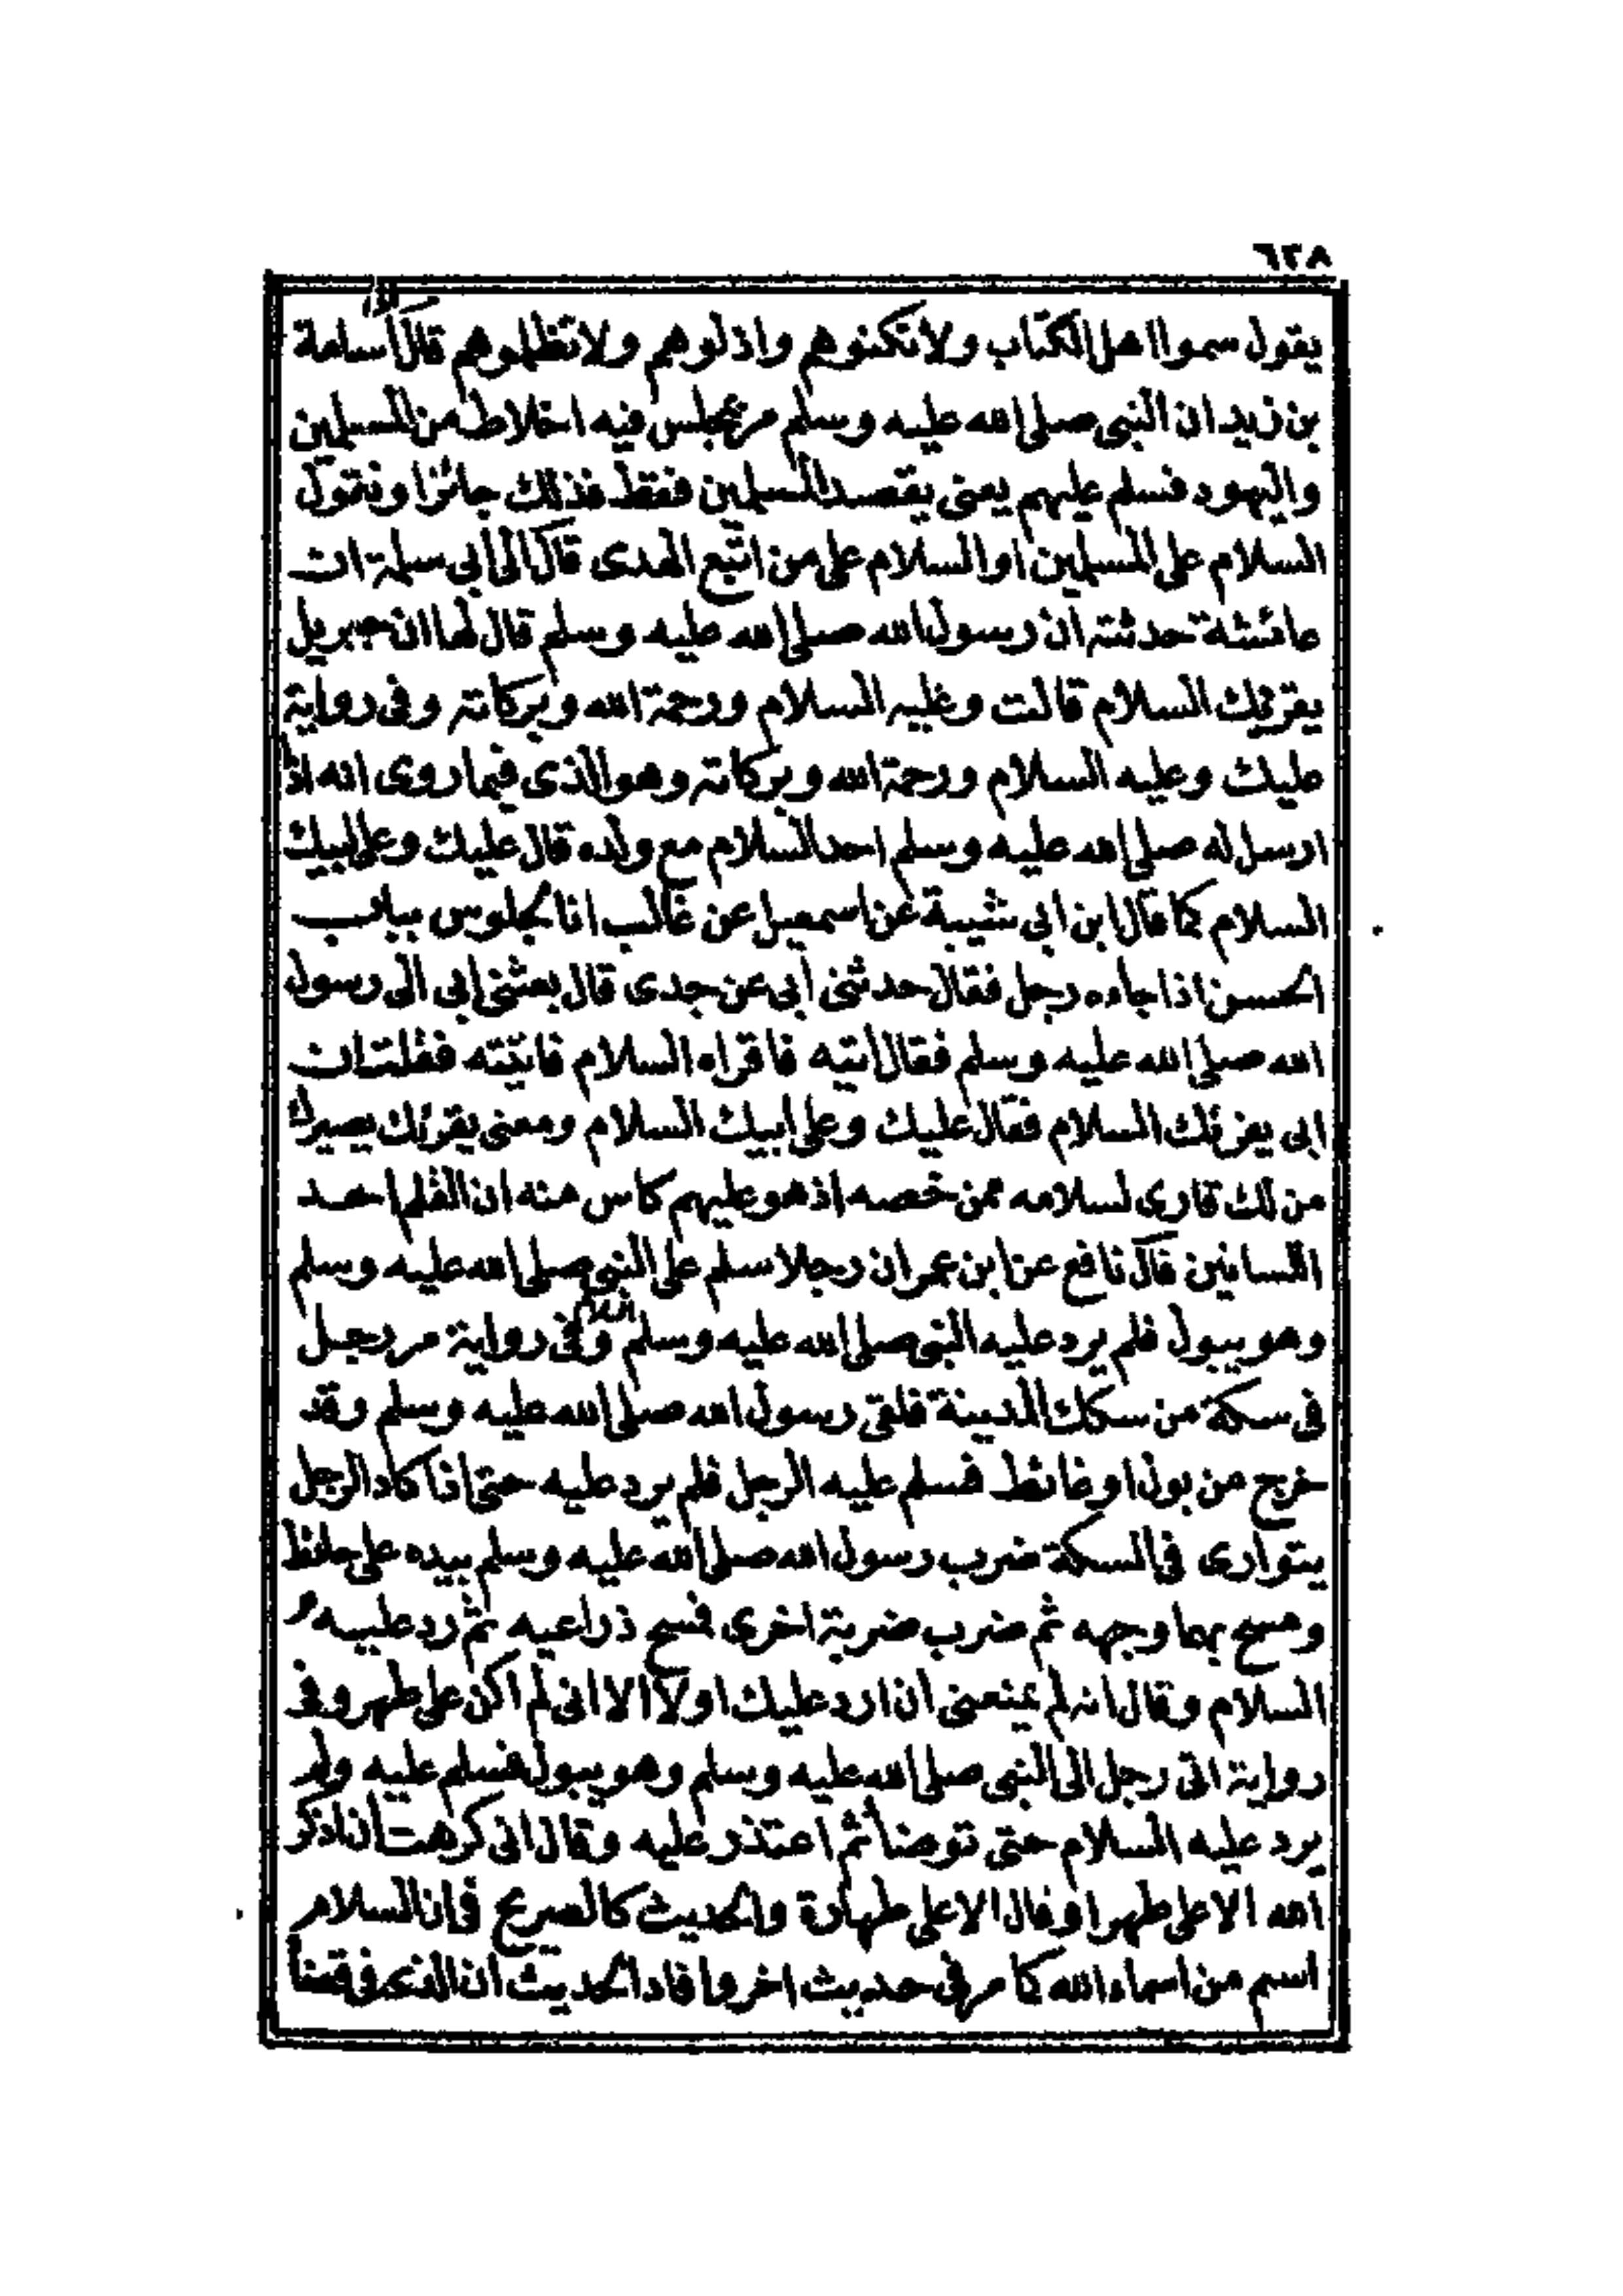 ٦٢٨
يقول سموا اهل الكتاب ولا تكنوهم واذلوهم ولا تظلموهم قال اسامة
بن زيد ان النبي صلى الله عليه وسلم مر بمجلس فيه اخلاط من المسلمين
واليهود فسلم عليهم يعني يقصد المسلمين فقط فذلك جائز او نقول
السلام على المسلمين او السلام على من اتبع الهدى قال ابي سلمة ان
عائشة حدثته ان رسول الله صلى الله عليه وسلم قال لها ان جبريل
يقرئك السلام قالت وعليه السلام ورحمة الله وبركاته وفي رواية
عليك وعليه السلام ورحمة الله وبركاته وهو الذي فيما روى انه اذا
ارسل له صلى الله عليه وسلم احد السلام مع ولده قال عليك وعلى ابيك
السلام كما قال ابن ابي شيبة عن اسمعيل عن غالب انا لجلوس بباب
الحسن اذا جاءه رجل فقال حدثني ابي عن جدى قال بعثني ابي الى رسول
الله صلى الله عليه وسلم فقال ائته فاقراه السلام فاتيته فقلت ان
ابى يقرئك السلام فقال عليك وعلى ابيك السلام ومعنى يقرئك يصيرك
من لك قارى لسلامه ممن خصه اذ هو عليهم كاس منه ان القلم احد
اللسانين قال نافع عن ابن عمر ان رجلا سلم على النبي صلى الله عليه وسلم
وهو يبول فلم يرد عليه النبي صلى الله عليه وسلم وفي رواية مر رجل
في سكة من سكك المدينة فلقى رسول الله صلى الله عليه وسلم وقد
خرج من بول او غائط فسلم عليه الرجل فلم يرد عليه حتى اذا كاد الرجل
يتوارى في السكة ضرب رسول الله صلى الله عليه وسلم بيده على حائط
ومسح بها وجهه ثم ضرب ضربة اخرى فمسح ذراعيه ثم رد عليه
السلام وقال انه لم يمنعني ان ارد عليك اولا الا اني لم اكن على طهر وفي
رواية اتى رجل الى النبي صلى الله عليه وسلم وهو يبول فسلم عليه ولم
يرد عليه السلام حتى توضأ ثم اعتذر عليه وقال اني كرهت ان اذكر
الله الا على طهر او قال الا على طهارة والحديث كالصريح في ان السلام
اسم من اسماء الله كما مر في حديث اخر وافاد الحديث ان الذى